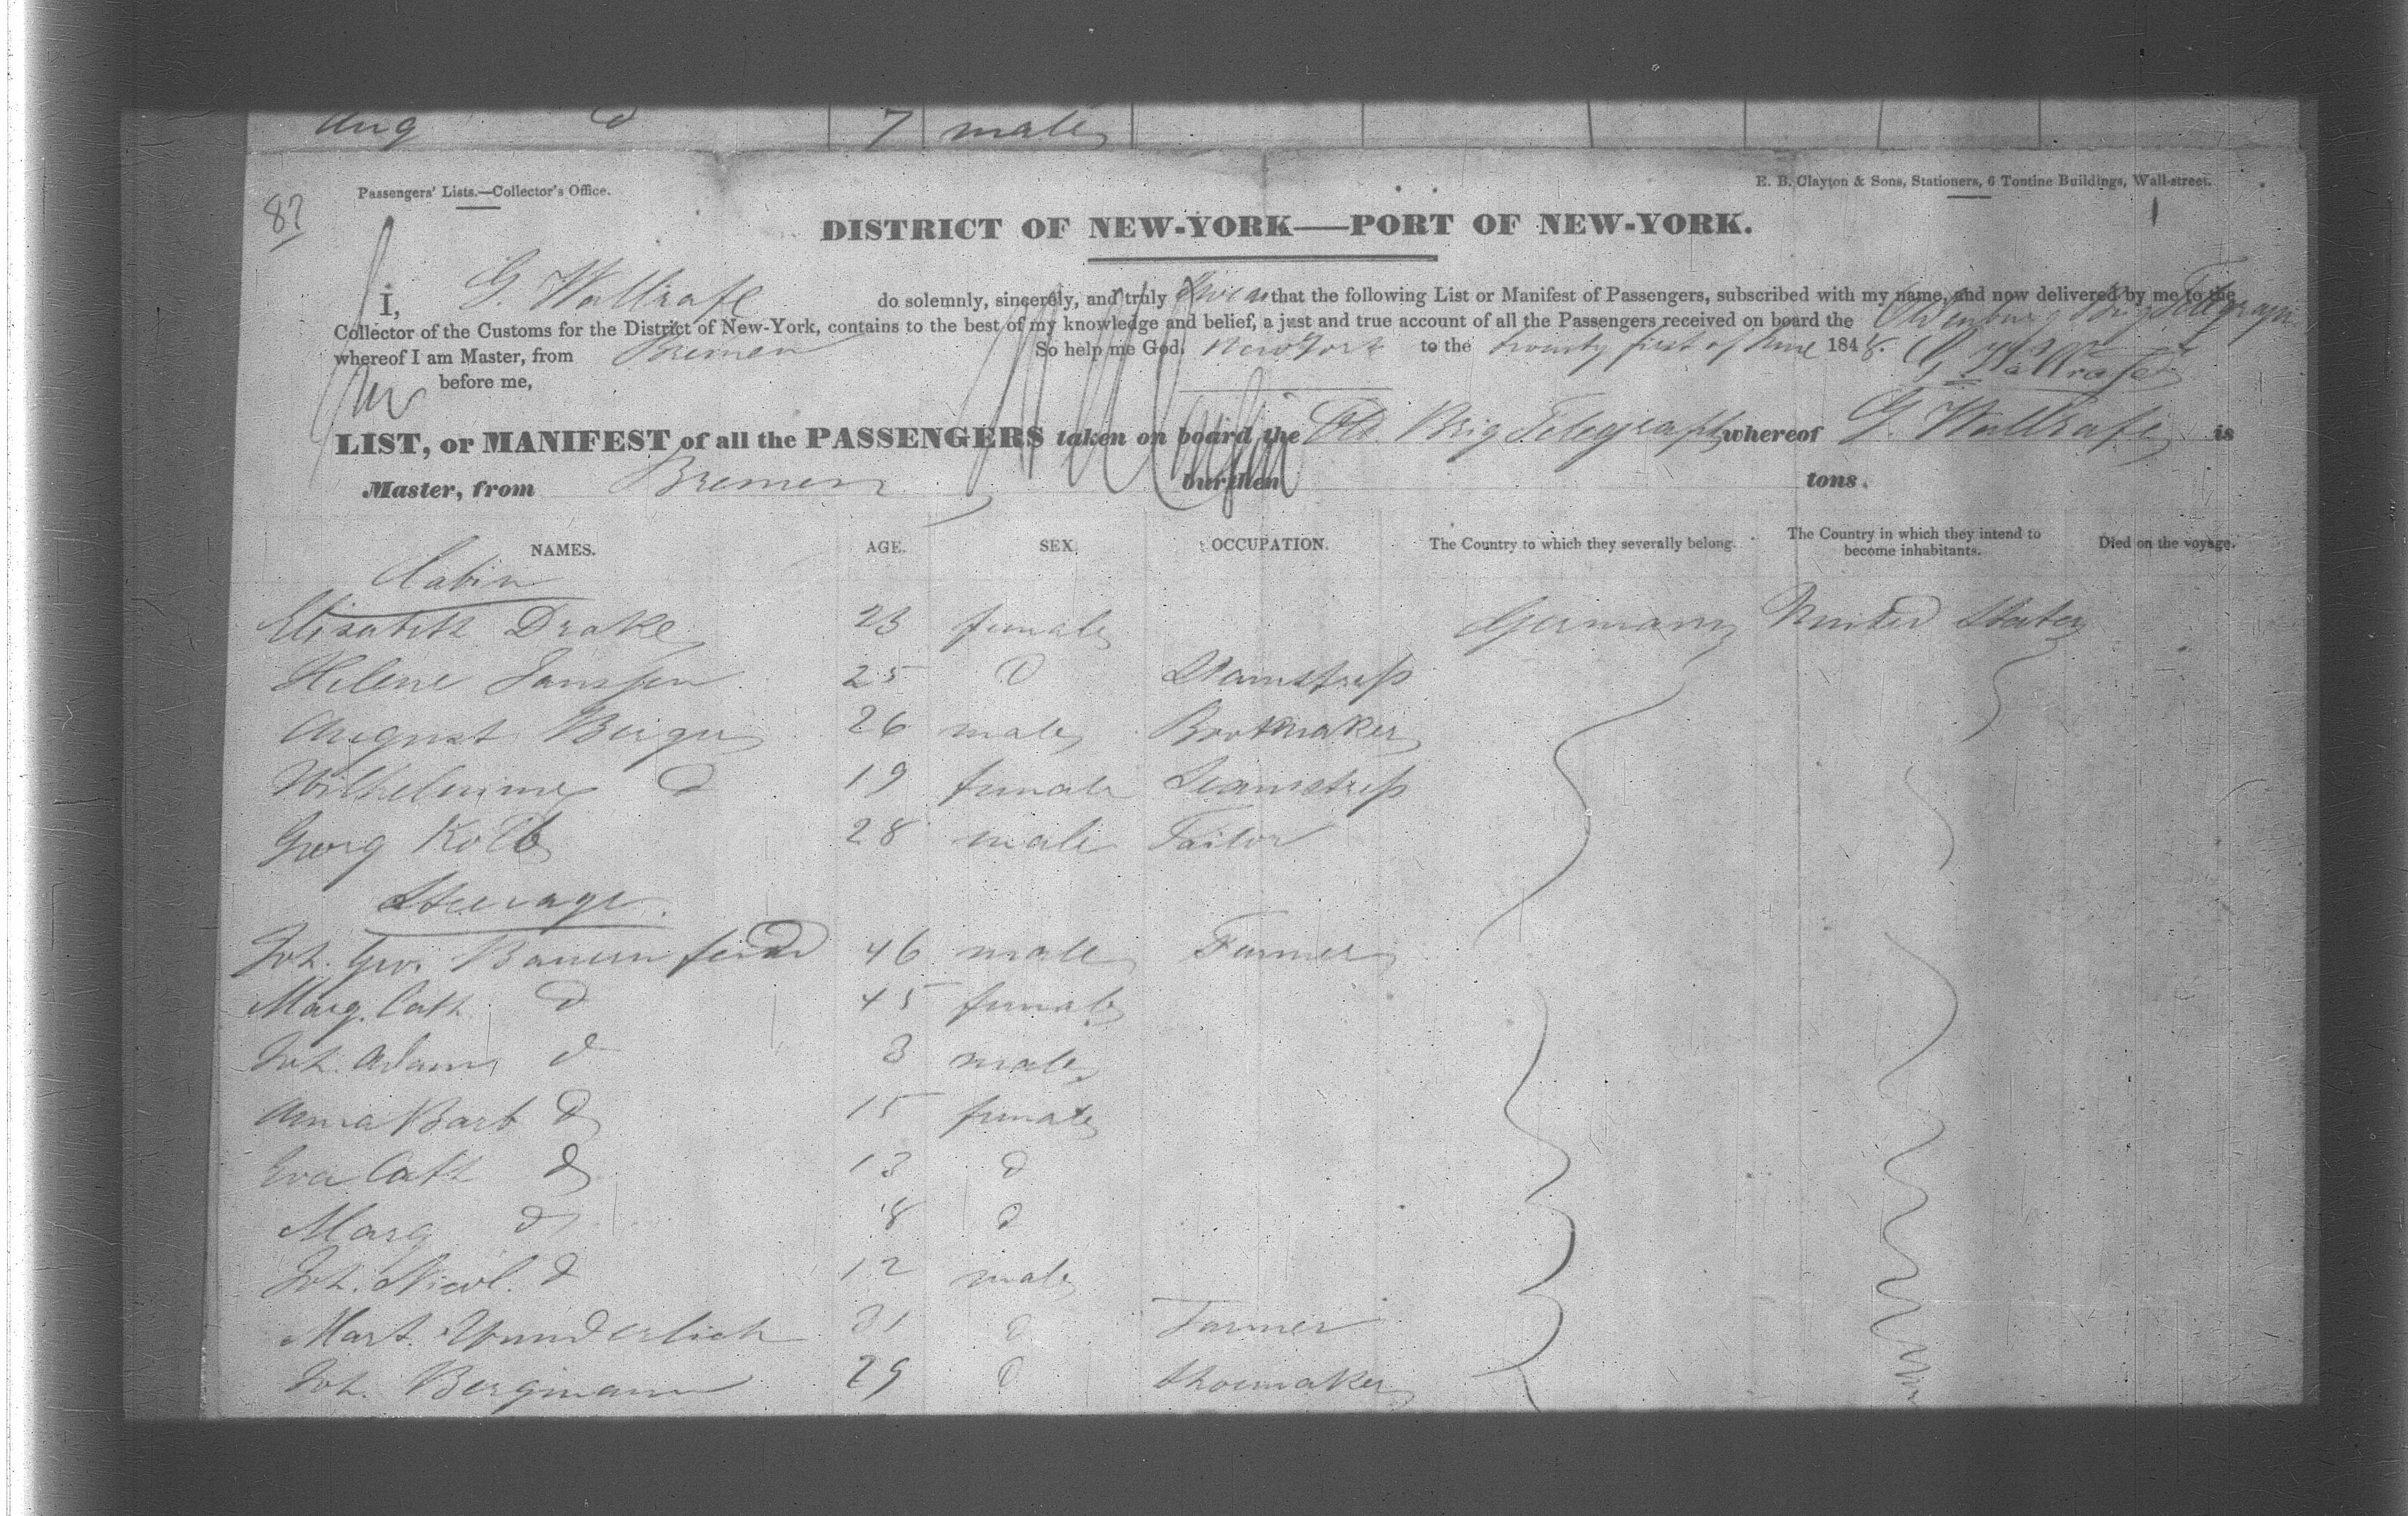 Aug d 7 male
Passengers' Lists.—Collector's Office.
E. B. Clayton & Sons, Stationers, 6 Tontine Buildings, Wall-street.
DISTRICT OF NEW-YORK——PORT OF NEW-YORK.
I, G. Wallrafe do solemnly, sincerely, and truly that the following List or Manifest of Passengers, subscribed with my name, and now delivered by me to the
Collector of the Customs for the District of New-York, contains to the best of my knowledge and belief, a just and true account of all the Passengers received on board the Oldenburg Brig Telegraph
whereof I am Master, from Bremen So help me God. New York to the twenty first of June 1848. G. Wallrafe
before me,
LIST, or MANIFEST of all the PASSENGERS taken on board the Old. Brig Telegraph whereof G. Wallrafe is
Master, from Bremen burthen tons.
NAMES. AGE. SEX. OCCUPATION. The Country to which they severally belong. The Country in which they intend to become inhabitants. Died on the voyage.
Cabin
Elisabeth Drake 23 female Germany United States
Helene Janssen 25 d Seamstress
August Berger 26 male Bootmaker
Wilhelmine d 19 female Seamstress
Georg Kolb 28 male Tailor
Steerage.
Joh. Geo. Bauernfeind 46 male Farmer
Marg. Cath d 45 female
Joh. Adam d 3 male
Anna Barb d 15 female
Eva Cath d 13 d
Marg d 8 d
Joh. Nicol. d 12 male
Mart. Wunderlich 31 d Farmer
Joh. Bergmann 29 d Shoemaker